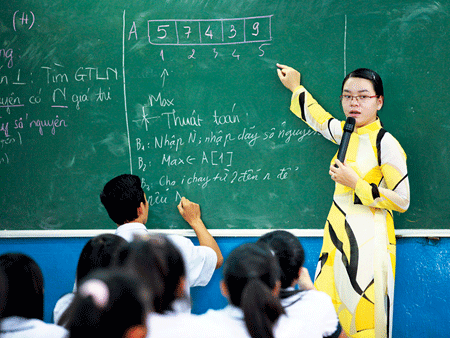 (H)
1 : Tìm GTLN
nguyên có N giá trị
dãy số nguyên
A 5 7 4 3 9
1 2 3 4 5
Max
* Thuật toán:
B₁: Nhập N; nhập dãy số nguyên
B₂: Max ← A[1]
B₃: Cho i chạy từ 2 đến n để
nếu